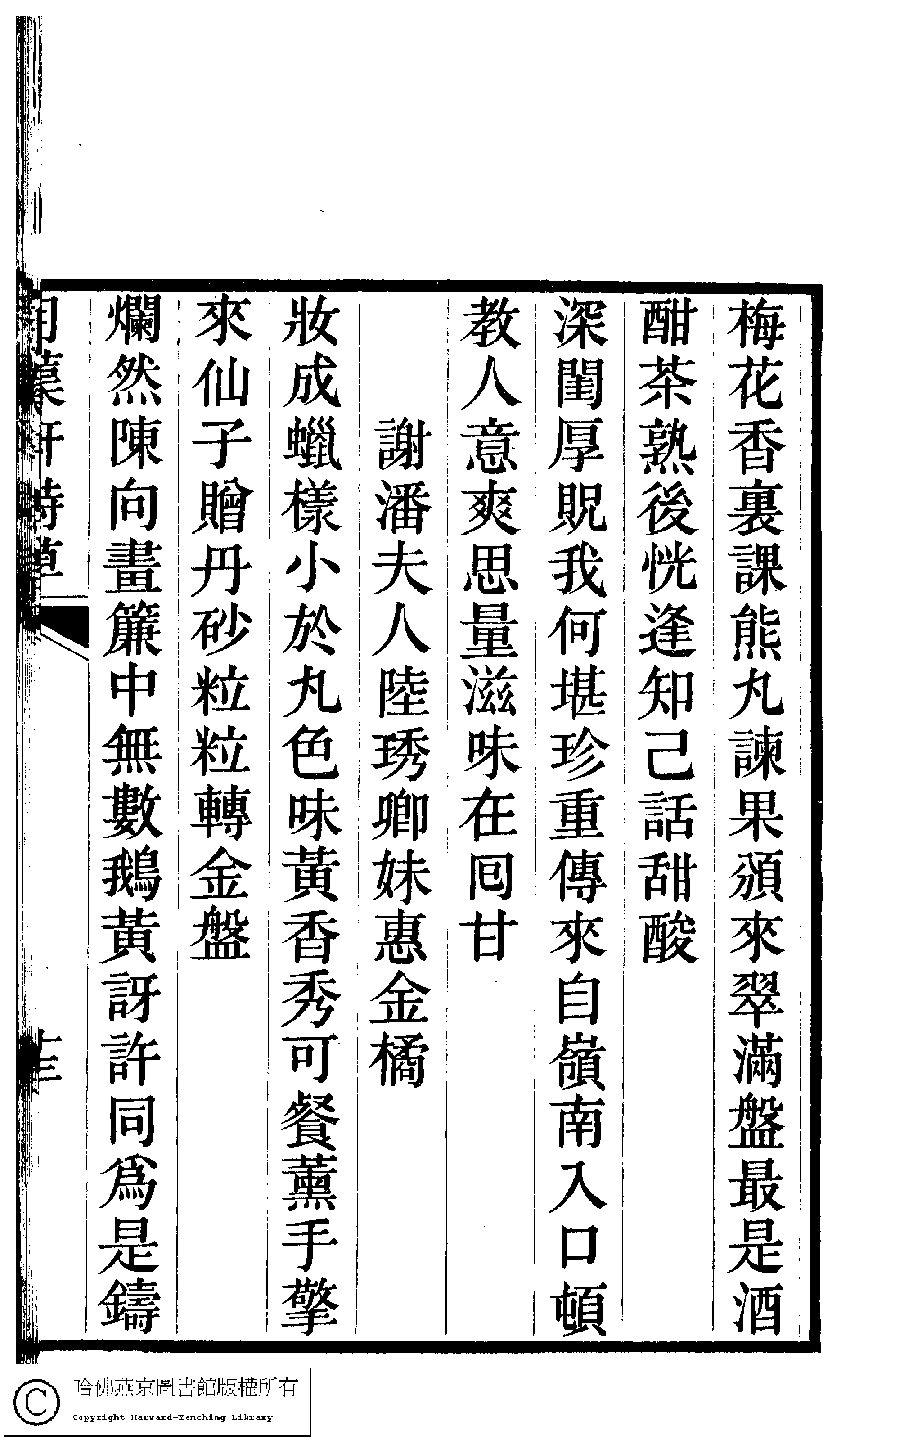 梅花香裏課熊丸諫果頒來翠滿盤最是酒
酣茶熟後恍逢知己話甜酸
深閨厚貺我何堪珍重傳來自嶺南入口頓
教人意爽思量滋味在囘甘
謝潘夫人陸琇卿妹惠金橘
妝成蠟樣小於丸色味黃香秀可餐薰手擎
來仙子贈丹砂粒粒轉金盤
爛然陳向畫簾中無數鵝黃訝許同爲是鑄
軒詩草
哈佛燕京圖書館版權所有
Copyright Harvard-Yenching Library